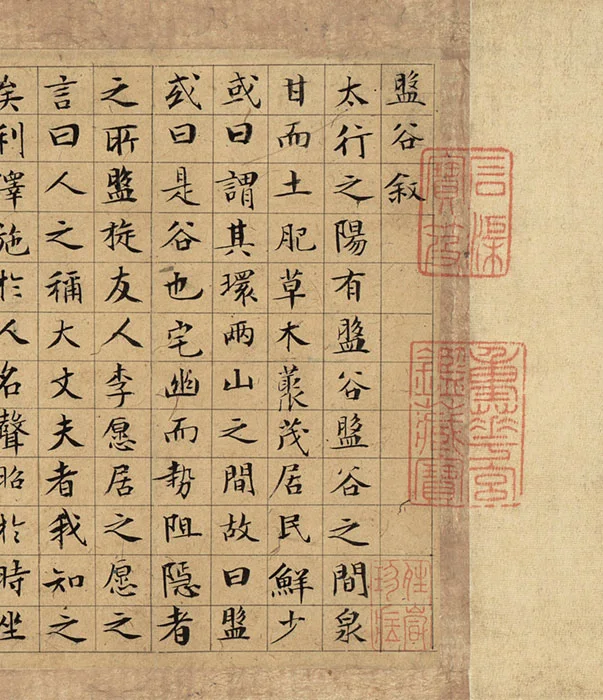 盤谷敘
太行之陽有盤谷盤谷之間泉
甘而土肥草木藂茂居民鮮少
或曰謂其環兩山之間故曰盤
或曰是谷也宅幽而勢阻隱者
之所盤旋友人李愿居之愿之
言曰人之稱大丈夫者我知之
矣利澤施於人名聲昭於時坐